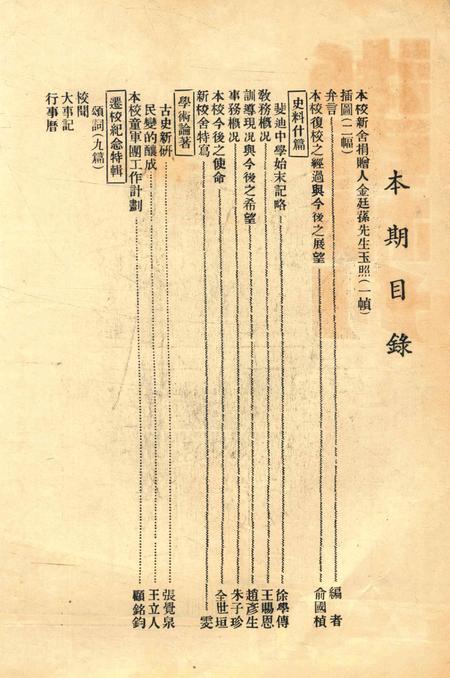 本期目錄
本校新舍捐贈人金廷蓀先生玉照(一幀)
插圖(二幅)
弁言 編者
本校復校之經過與今後之展望 俞國楨
史料什篇
斐迪中學始末記略 徐學傳
敎務概况 王賜恩
訓導現况與今後之希望 趙彥生
事務概况 朱子珍
本校今後之使命 全世垣
新校舍特寫 雯
學術論著
古史新研 張覺泉
民變的釀成 王立人
本校童軍團工作計劃 顧銘鈞
遷校紀念特輯
頌詞(九篇)
校聞
大事記
行事曆